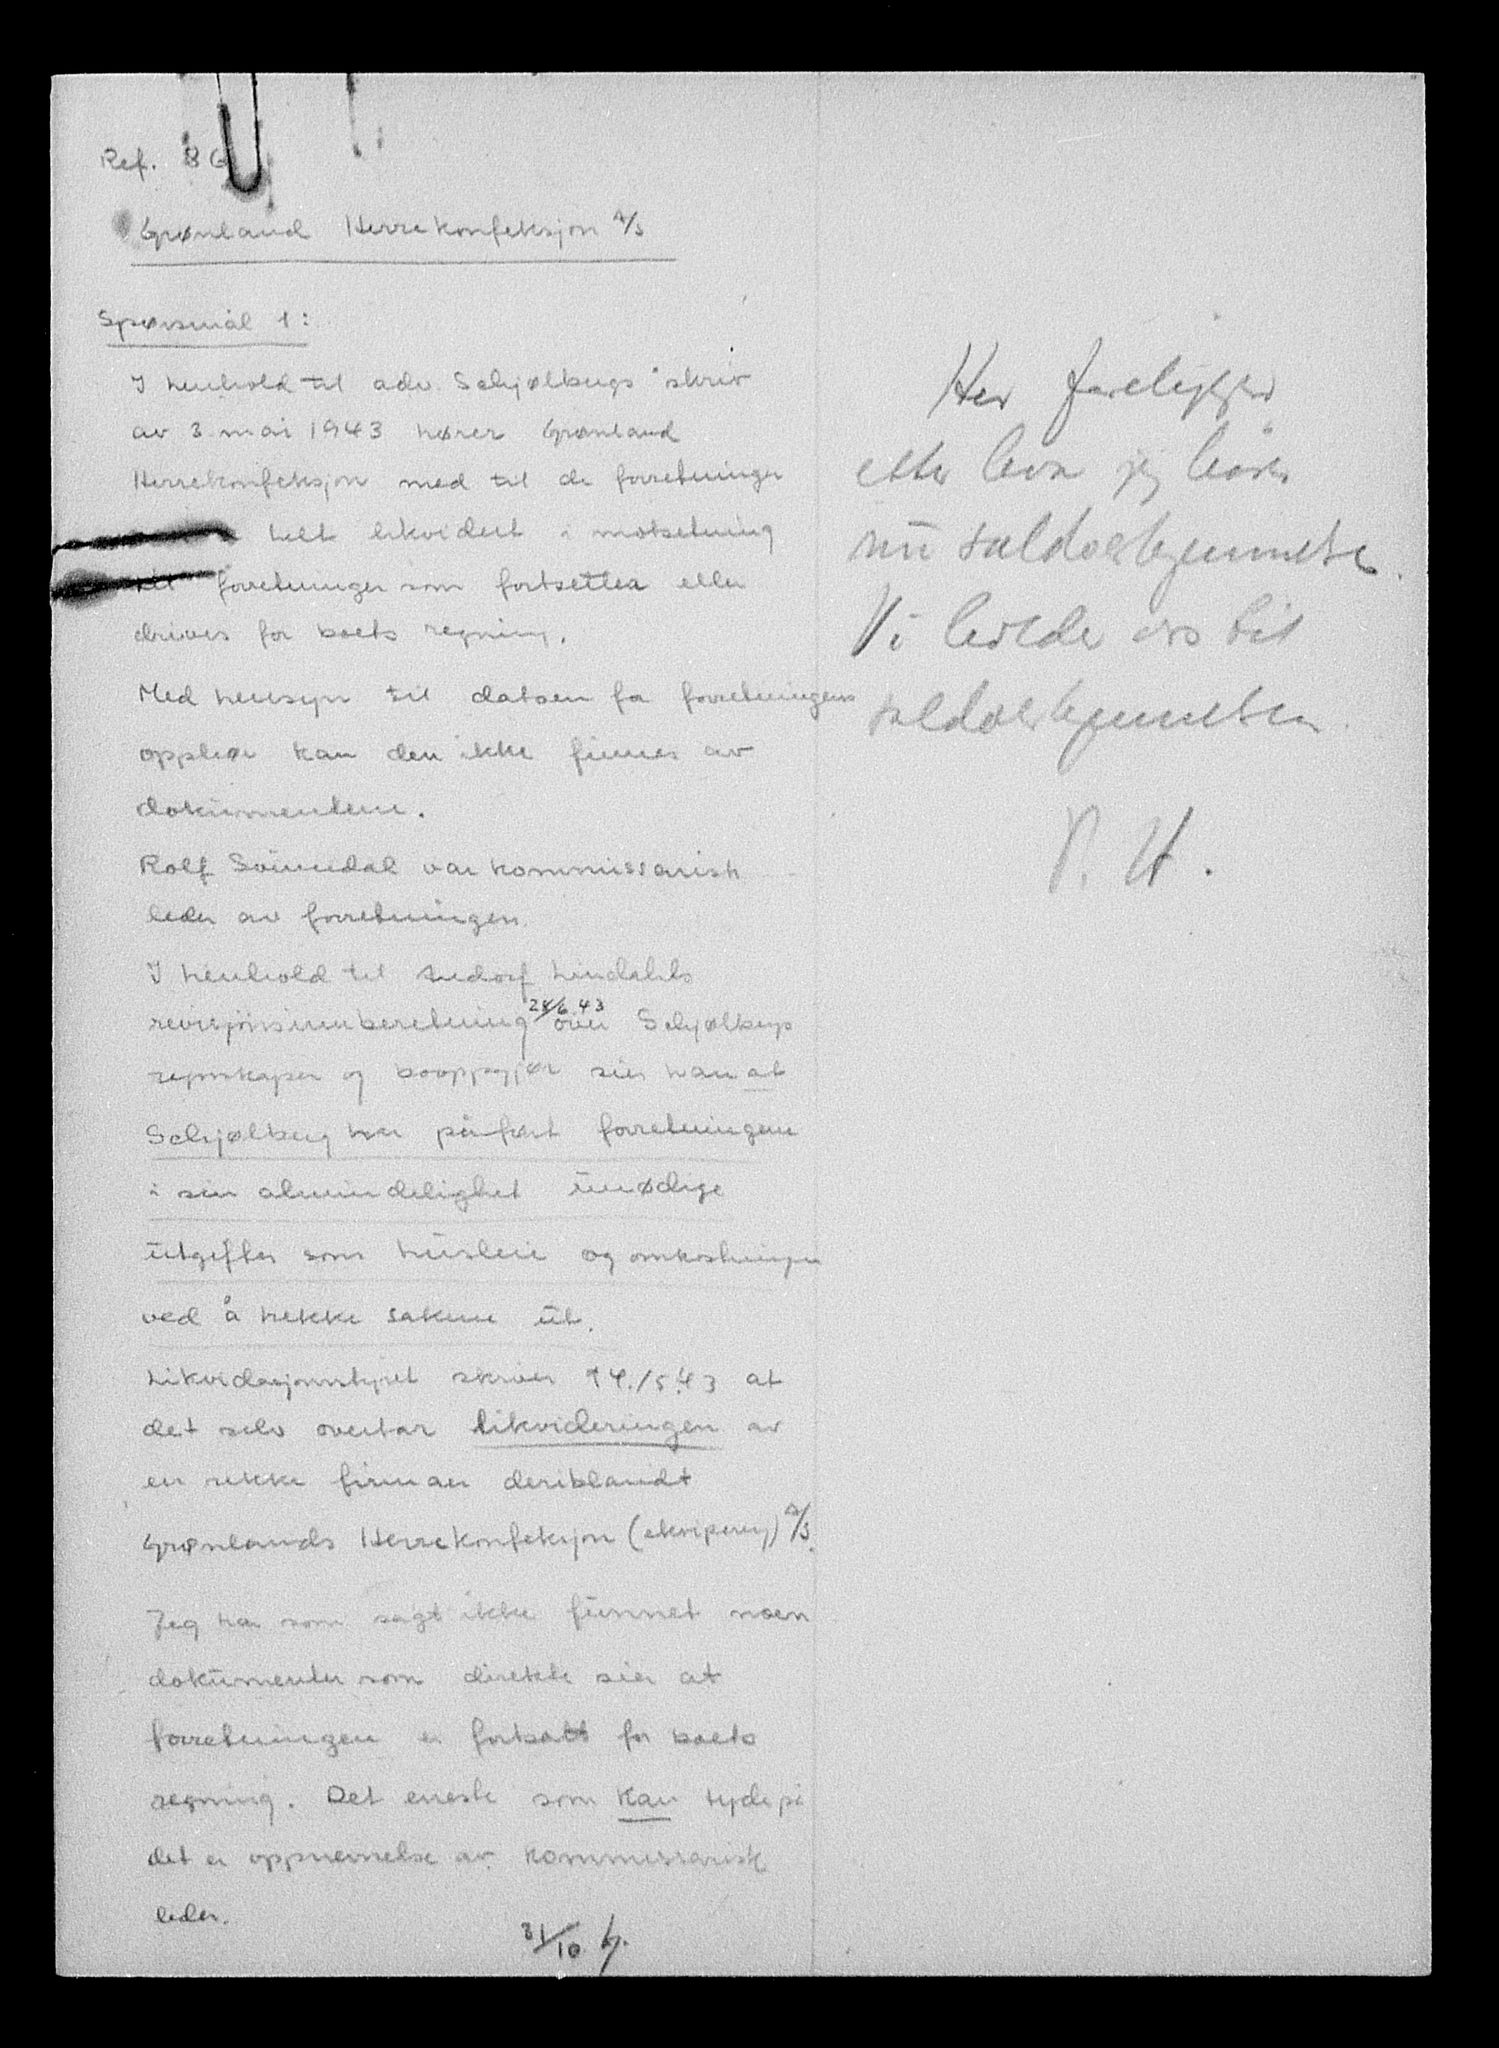 Ref. 86
Grønland Herrekonfeksjon A/S
Spørsmål 1:
I henhold til adv. Schjølbergs skriv
av 3 mai 1943 hører Grønland
Herrekonfeksjon med til de forretninger
helt likvidert i motsetning
til forretninger som fortsettes eller
drives for boets regning.
Med hensyn til datoen for forretningens
opphør kan den ikke finnes av
dokumentene.
Rolf Svinndal var kommissarisk
leder av forretningen.
I henhold til Lindahls
revisjonsinnberetning 28/6.43 over Schjølbergs
regnskaper og booppgjør sier han at
Schjølberg har påført forretningene
i sin almindelighet unødige
utgifter som husleie og omkostninger
ved å trekke sakene ut.
Likvidasjonsstyret skriver 14./5.43 at
det selv overtar likvideringen av
en rekke firmaer deriblandt
Grønlands Herrekonfeksjon (ekvipering) A/S.
Jeg har som sagt ikke funnet noen
dokumenter som direkte sier at
forretningen er fortsatt for boets
regning. Det eneste som kan tyde på
det er oppnevnelse av kommissarisk
leder.
31/10 G.
Her foreligger
etter hva jeg hører
nu saldoerkjennelse.
Vi holder oss til
saldoerkjennelsen.
P. H.